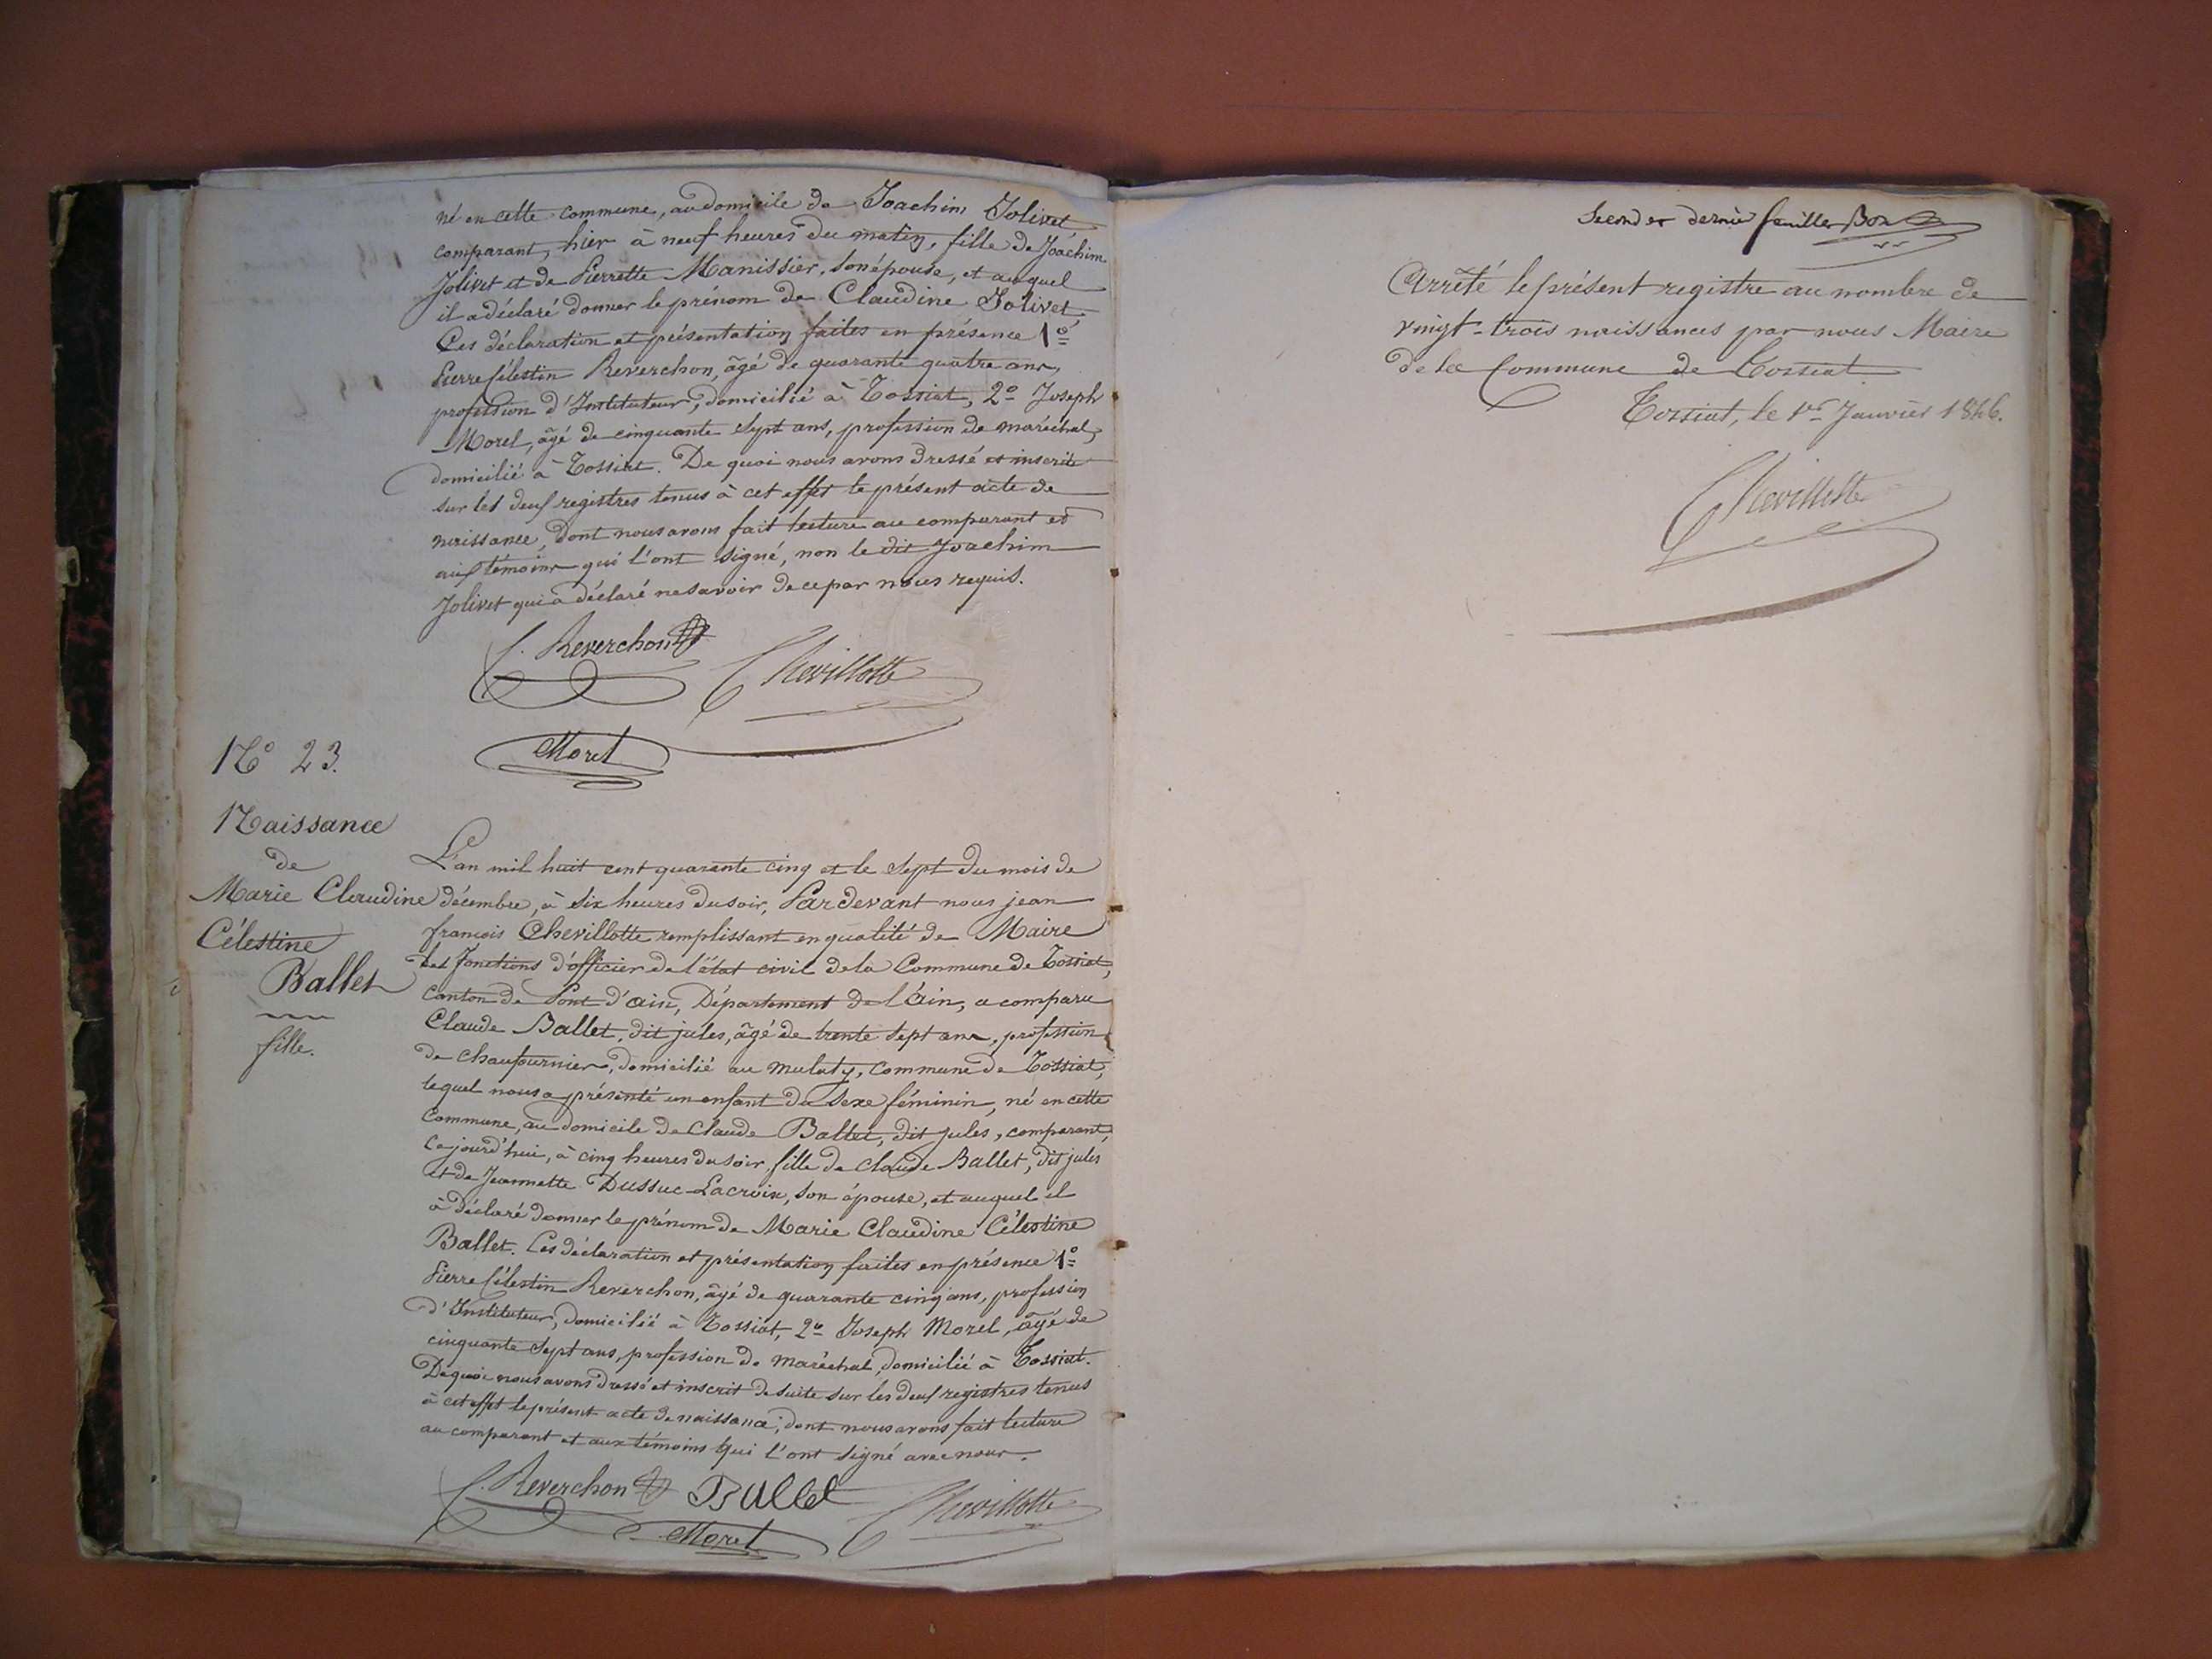 né en cette commune, au domicile de Joachim Jolivet
comparant, hier à neuf heures du matin, fille de Joachim
Jolivet et de Pierrette Manissier, son épouse, et auquel
il a déclaré donner le prénom de Claudine Jolivet.
Ces déclaration et présentation faites en présence 1º
Pierre Célestin Reverchon, âgé de quarante quatre ans,
profession d'Instituteur, domicilié à Tossiat, 2º Joseph
Morel, âgé de cinquante sept ans, profession de maréchal,
domicilié à Tossiat. De quoi nous avons dressé et inscrit
sur les deux registres tenus à cet effet le présent acte de
naissance, dont nous avons fait lecture au comparant et
aux témoins qui l'ont signé, non le dit Joachim
Jolivet qui a déclaré ne savoir de ce par nous requis.
C. Reverchon Chevillotte
Morel
Nº 23.
Naissance
de
Marie Claudine
Célestine
Ballet
fille.
L'an mil huit cent quarante cinq et le sept du mois de
décembre, à six heures du soir, Pardevant nous jean
françois Chevillotte remplissant en qualité de Maire
les fonctions d'officier de l'état civil de la Commune de Tossiat,
canton de Pont d'ain, Département de l'Ain, a comparu
Claude Ballet, dit jules, âgé de trente sept ans, profession
de chaufournier, domicilié au mulaty, commune de Tossiat,
lequel nous a présenté un enfant du sexe féminin, né en cette
Commune, au domicile de Claude Ballet, dit jules, comparant,
Cejourd'hui, à cinq heures du soir, fille de Claude Ballet, dit jules
et de Jeannette Dussuc-Lacroix, son épouse, et auquel il
à déclaré donner le prénom de Marie Claudine Célestine
Ballet. Ces déclaration et présentation faites en présence 1º
Pierre Célestin Reverchon, âgé de quarante cinq ans, profession
d'Instituteur, domicilié à Tossiat, 2º Joseph Morel, âgé de
cinquante sept ans, profession de maréchal, domicilié à Tossiat.
De quoi nous avons dressé et inscrit de suite sur les deux registres tenus
à cet effet le présent acte de naissance; dont nous avons fait lecture
au comparant et aux témoins qui l'ont signé avec nous.
C. Reverchon Ballet Chevillotte
Morel
Second et dernier feuillet
Arrêté le présent registre au nombre de
vingt-trois naissances par nous Maire
de la Commune de Tossiat
Tossiat, le 1er Janvier 1846.
Chevillotte